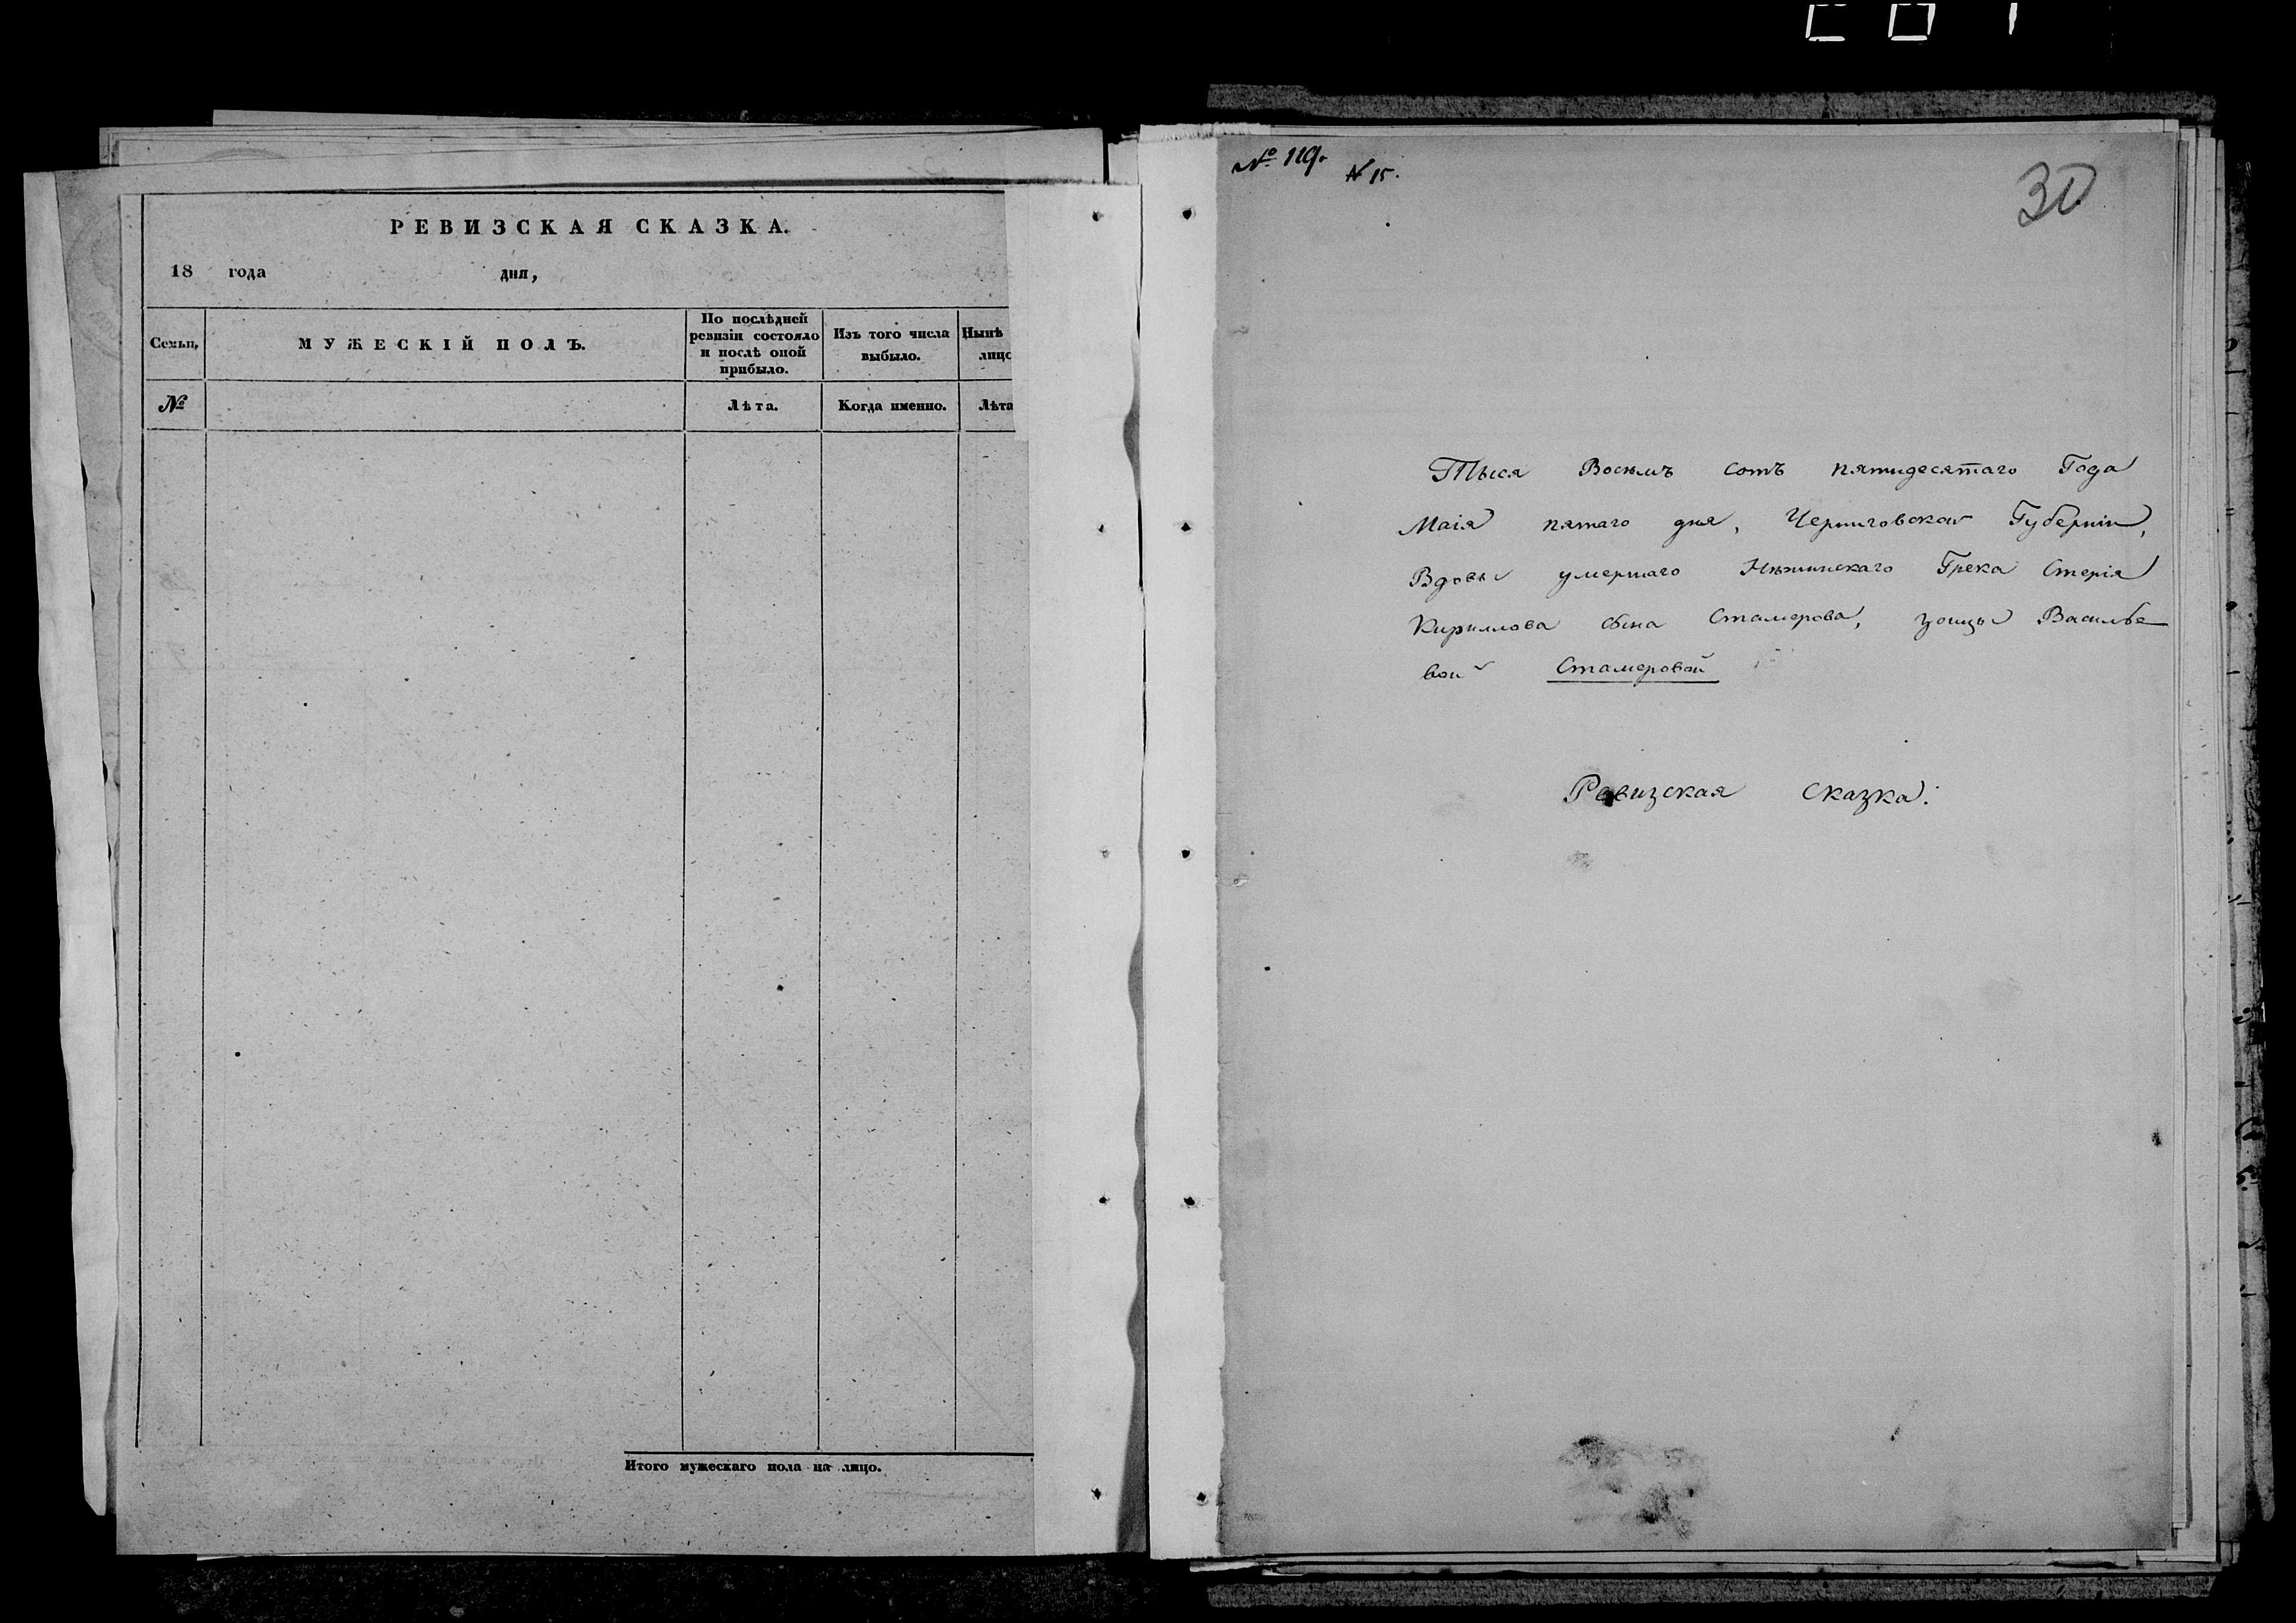 РЕВИЗСКАЯ СКАЗКА.
18 года дня,
Семьи. МУЖЕСКІЙ ПОЛЪ. По послѣдней ревизіи состояло и послѣ оной прибыло. Изъ того числа выбыло. Нынѣ лицо
№ Лѣта. Когда именно. Лѣта
Итого мужескаго пола на лицо.
№ 119.
№ 15.
30
Тыся Восемъ сотъ пятидесятаго Года
Маія пятаго дня, Черниговской Губерніи,
Вдовы умершаго Нѣжинскаго Грека Стерія
Кирилова сына Стамерова, Зоицы Василье
вой Стамеровой
Ревизская сказка: